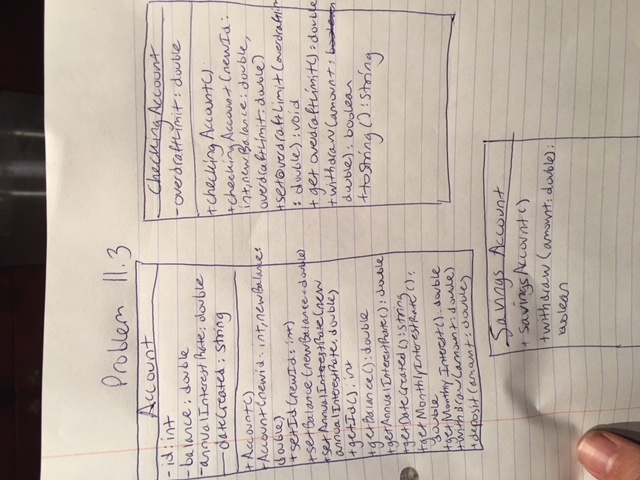 Problem 11.3
Account
- id: int
- balance: double
- annualInterestRate: double
- dateCreated: string
+ Account()
+ Account(newid: int, newBalance:
double)
+ setId(newId: int)
+ setBalance(newBalance: double)
+ setAnnualInterestRate(new
annualInterestRate, double)
+ getId(): int
+ getBalance(): double
+ getAnnualInterestRate(): double
+ getDateCreated(): string
+ getMonthlyInterestRate():
double
+ getMonthly Interest(): double
+ withdraw(amount: double)
+ deposit(amount: double)
Checking Account
- overdraftLimit: double
+ checkingAccount()
+ checkingAccount(newId:
int, newBalance: double,
overdraftLimit: double)
+ setOverdraftLimit(overdraftLim
: double): void
+ get overdraftLimit(): double
+ withdraw(amount: boolean
double): boolean
+ toString(): string
Savings Account
+ SavingsAccount()
+ withdraw(amount: double):
boolean